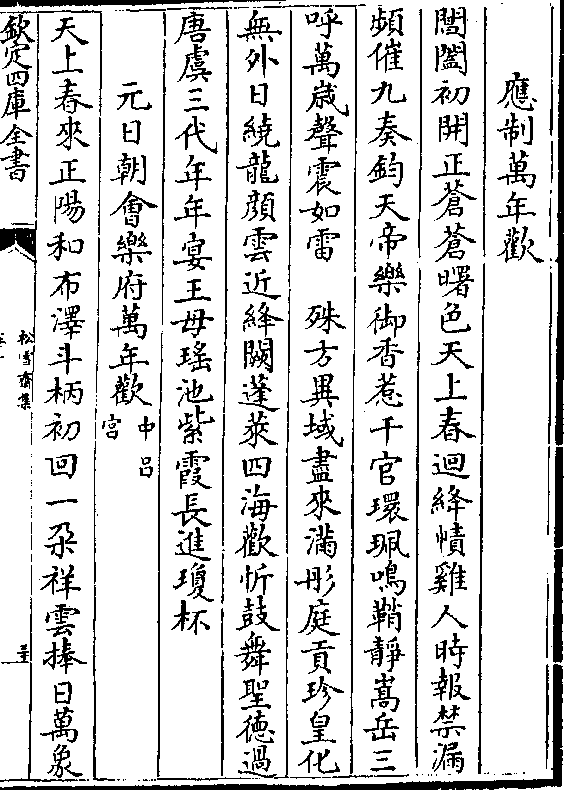 應制萬年歡
閶闔初開正蒼蒼曙色天上春迴絳幘雞人時報禁漏
頻催九奏鈞天帝樂御香惹千官環珮鳴鞘靜嵩岳三
呼萬歲聲震如雷　殊方異域盡來滿彤庭貢珍皇化
無外日繞龍顔雲近絳闕蓬萊四海歡忻鼓舞聖德過
唐虞三代年年宴王母瑤池紫霞長進瓊杯
元日朝會樂府萬年歡中吕宫
天上春來正陽和布澤斗柄初回一朶祥雲捧日萬象
欽定四庫全書
松雪齋集